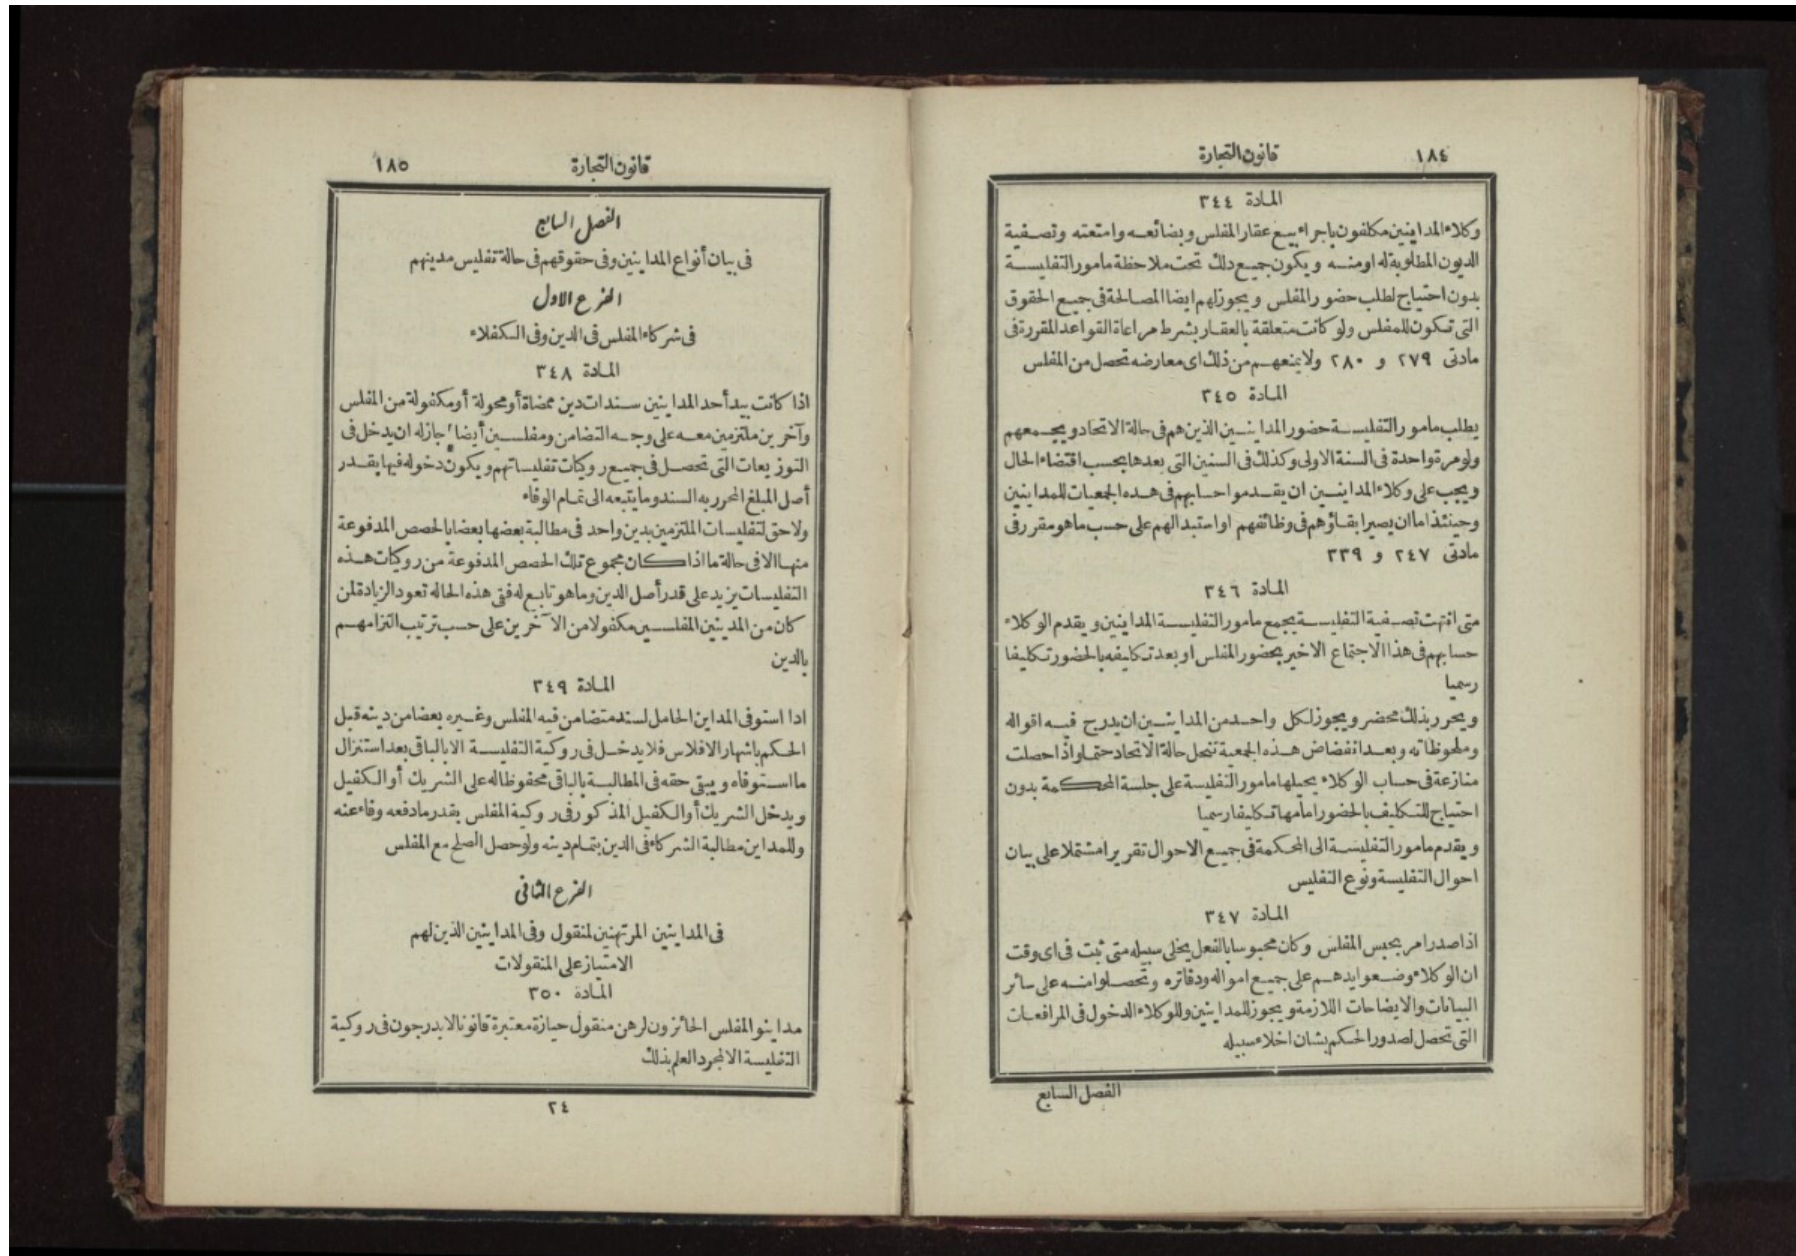 ١٨٤ قانون التجارة
المادة ٣٤٤
وكلاء المداينين مكلفون باجراء بيع عقار المفلس وبضائعه وامتعته وتصفية
الديون المطلوبة له اومنه ويكون جميع دلك تحت ملاحظة مامور التفليسة
بدون احتياج لطلب حضور المفلس ويجوز لهم ايضا المصالحة فى جميع الحقوق
التى تكون للمفلس ولو كانت متعلقة بالعقار بشرط مراعاة القواعد المقررة فى
مادتى ٢٧٩ و ٢٨٠ ولا يمنعهم من ذلك اى معارضه تحصل من المفلس
المادة ٣٤٥
يطلب مامور التفليسة حضور المداينين الذين هم فى حالة الاتحاد ويجمعهم
ولو مرة واحدة فى السنة الاولى وكذلك فى السنين التى بعدها بحسب اقتضاء الحال
ويجب على وكلاء المداينين ان يقدموا حسابهم فى هذه الجمعيات للمداينين
وحينئذ اما ان يصير ابقاؤهم فى وظائفهم او استبدالهم على حسب ماهو مقرر فى
مادتى ٢٤٧ و ٣٣٩
المادة ٣٤٦
متى انتهت تصفية التفليسة يجمع مامور التفليسة المداينين ويقدم الوكلاء
حسابهم فى هذا الاجتماع الاخير بحضور المفلس او بعد تكليفه بالحضور تكليفا
رسميا
ويحرر بذلك محضر ويجوز لكل واحد من المداينين ان يدرج فيه اقواله
وملحوظاته وبعد انفضاض هذه الجمعية تنحل حالة الاتحاد حتما واذا حصلت
منازعة فى حساب الوكلاء يحيلها مامور التفليسة على جلسة المحكمة بدون
احتياج للتكليف بالحضور امامها تكليفا رسميا
ويقدم مامور التفليسة الى المحكمة فى جميع الاحوال تقريرا مشتملا على بيان
احوال التفليسة ونوع التفليس
المادة ٣٤٧
اذا صدر امر بحبس المفلس وكان محبوسا بالفعل يخلى سبيله متى ثبت فى اى وقت
ان الوكلاء وضعوا يدهم على جميع امواله ودفاتره وتحصلوا منه على سائر
البيانات والايضاحات اللازمة ويجوز للمداينين وللوكلاء الدخول فى المرافعات
التى تحصل لصدور الحكم بشان اخلاء سبيله
الفصل السابع
قانون التجارة ١٨٥
الفصل السابع
فى بيان أنواع المداينين وفى حقوقهم فى حالة تفليس مدينهم
الفرع الاول
فى شركاء المفلس فى الدين وفى الكفلاء
المادة ٣٤٨
اذا كانت بيد أحد المداينين سندات دين ممضاة أو محولة أو مكفولة من المفلس
وآخرين ملتزمين معه على وجه التضامن ومفلسين أيضا جاز له ان يدخل فى
التوزيعات التى تحصل فى جميع روكيات تفليساتهم ويكون دخوله فيها بقدر
أصل المبلغ المحرر به السند وما يتبعه الى تمام الوفاء
ولاحق لتفليسات الملتزمين بدين واحد فى مطالبة بعضها بعضا بالحصص المدفوعة
منها الا فى حالة ما اذا كان مجموع تلك الحصص المدفوعة من روكيات هذه
التفليسات يزيد على قدر أصل الدين وماهو تابع له ففى هذه الحالة تعود الزيادة لمن
كان من المدينين المفلسين مكفولا من الآخرين على حسب ترتيب التزامهم
بالدين
المادة ٣٤٩
ادا استوفى المداين الحامل لسند متضامن فيه المفلس وغيره بعضا من دينه قبل
الحكم باشهار الافلاس فلا يدخل فى روكية التفليسة الا بالباقى بعد استنزال
ما استوفاه ويبقى حقه فى المطالبة بالباقى محفوظا له على الشريك أو الكفيل
ويدخل الشريك أو الكفيل المذكور فى روكية المفلس بقدر مادفعه وفاء عنه
وللمداين مطالبة الشركاء فى الدين بتمام دينه ولو حصل الصلح مع المفلس
الفرع الثانى
فى المداينين المرتهنين لمنقول وفى المداينين الذين لهم
الامتياز على المنقولات
المادة ٣٥٠
مداينو المفلس الحائزون لرهن منقول حيازة معتبرة قانونا لا يدرجون فى روكية
التفليسة الا لمجرد العلم بذلك
٢٤